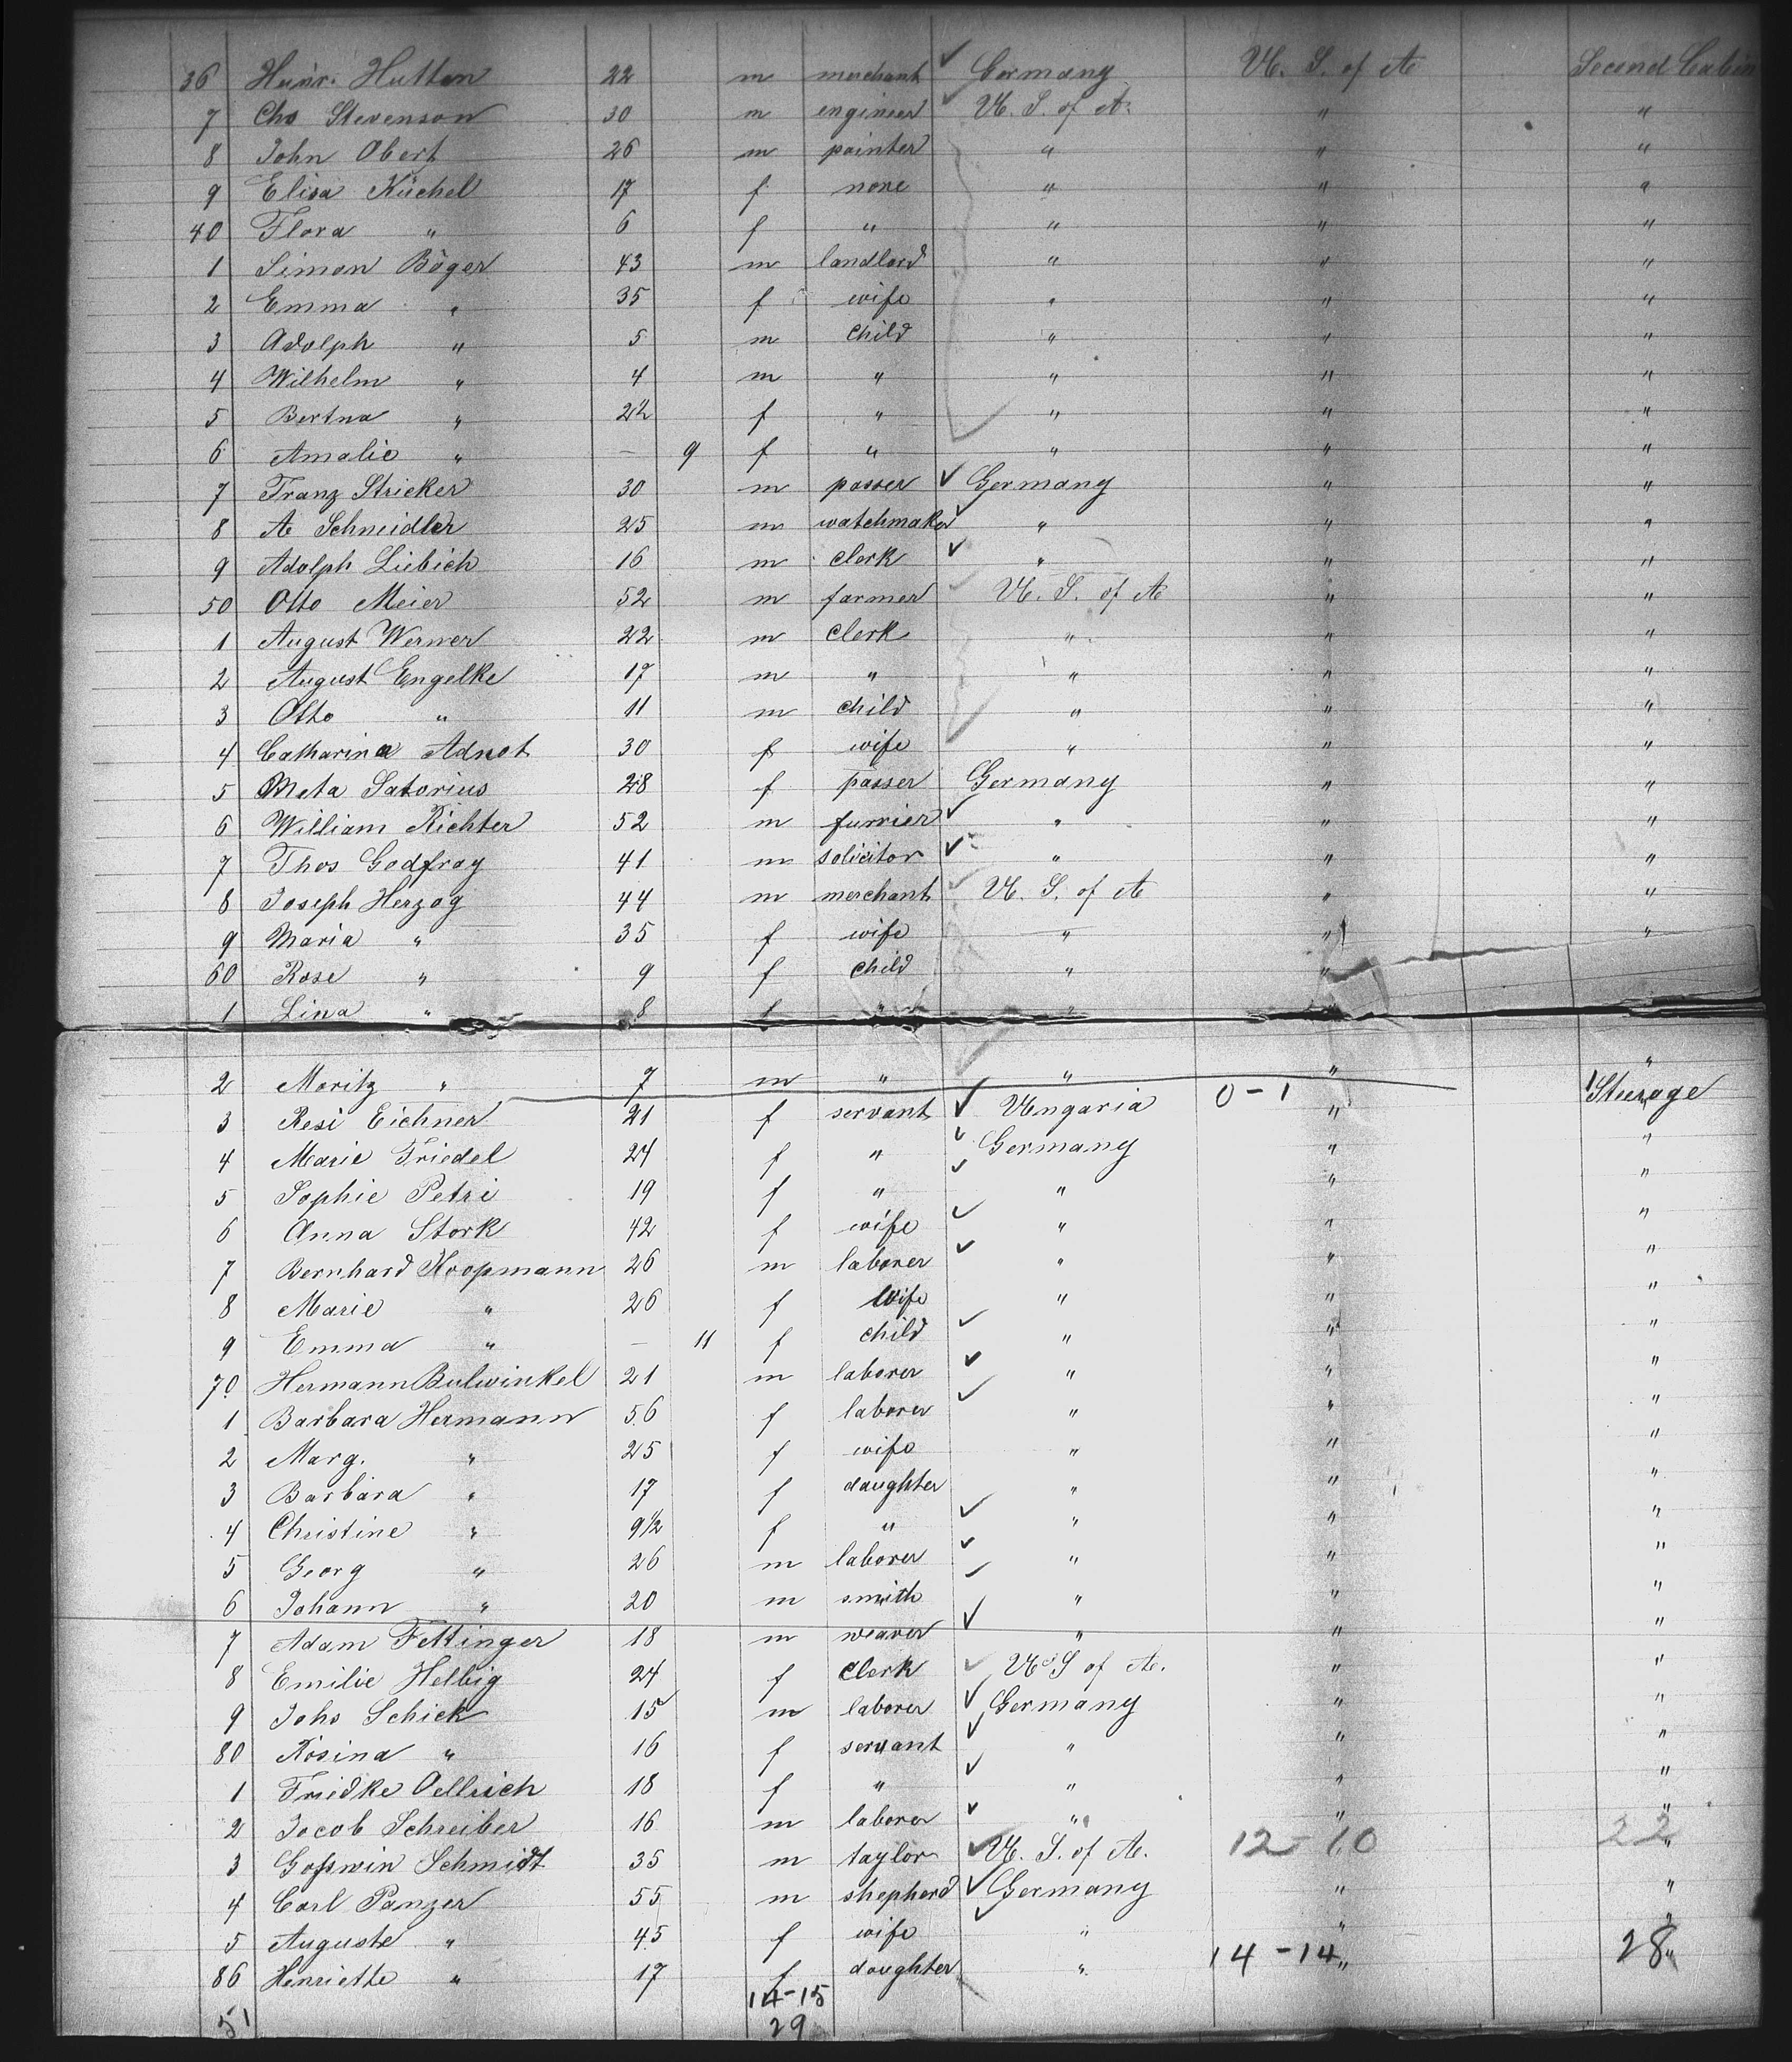 36 Heinr. Hutten 22 m merchant ✓ Germany U. S. of A Second Cabin
7 Chs Stevenson 30 m engineer ✓ U. S. of A. " "
8 John Obert 26 m painter " " "
9 Elisa Küchel 17 f none " " "
40 Flora " 6 f " " " "
1 Simon Böger 43 m landlord " " "
2 Emma " 35 f wife " " "
3 Adolph " 5 m child " " "
4 Wilhelm " 4 m " " " "
5 Bertna " f " " " "
6 Amalie " — 9 f " " " "
7 Franz Stricker 30 m passer ✓ Germany " "
8 A Schneidler 25 m watchmaker ✓ " " "
9 Adolph Liebich 16 m clerk ✓ " " "
50 Otto Meier 52 m farmer ✓ U. S. of A " "
1 August Werner 22 m clerk " " "
2 August Engelke 17 m " " " "
3 Otto " 11 m child " " "
4 Catharina Adnot 30 f wife " " "
5 Meta Satorius 28 f passer Germany " "
6 William Richter 52 m furrier ✓ " " "
7 Thos Godfray 41 m solicitor ✓ " " "
8 Joseph Herzog 44 m merchant ✓ U. S. of A " "
9 Maria " 35 f wife " " "
60 Rose " 9 f child " "
1 Lina " 8 f " "
2 Moritz " 7 m " " " "
3 Resi Eichner 21 f servant ✓ Ungaria 0-1 " Steerage
4 Marie Friedel 24 f " ✓ Germany " "
5 Sophie Petri 19 f " ✓ " " "
6 Anna Stork 42 f wife ✓ " " "
7 Bernhard Koopmann 26 m laborer ✓ " " "
8 Marie " 26 f wife " " "
9 Emma " — 11 f child ✓ " " "
70 Hermann Bulwinkel 21 m laborer ✓ " " "
1 Barbara Hermann 56 f laborer ✓ " " "
2 Marg. " 25 f wife " " "
3 Barbara " 17 f daughter " " "
4 Christine " 9½ f " ✓ " " "
5 Georg " 26 m laborer ✓ " " "
6 Johann " 20 m smith ✓ " " "
7 Adam Fettinger 18 m weaver ✓ " " "
8 Emilie Helbig 24 f clerk ✓ U S of A. " "
9 Johs Schick 15 m laborer ✓ Germany " "
80 Rosina " 16 f servant ✓ " " "
1 Friedke Oellrich 18 f " ✓ " " "
2 Jocob Schreiber 16 m laborer ✓ " " "
3 Gosswin Schmidt 35 m taylor ✓ U. S. of A. 12-10 22 "
4 Carl Panzer 55 m shepherd ✓ Germany " "
5 Auguste " 45 f wife ✓ " " "
86 Henriette " 17 f daughter " 14-14 " 28 "
51 14-15
29